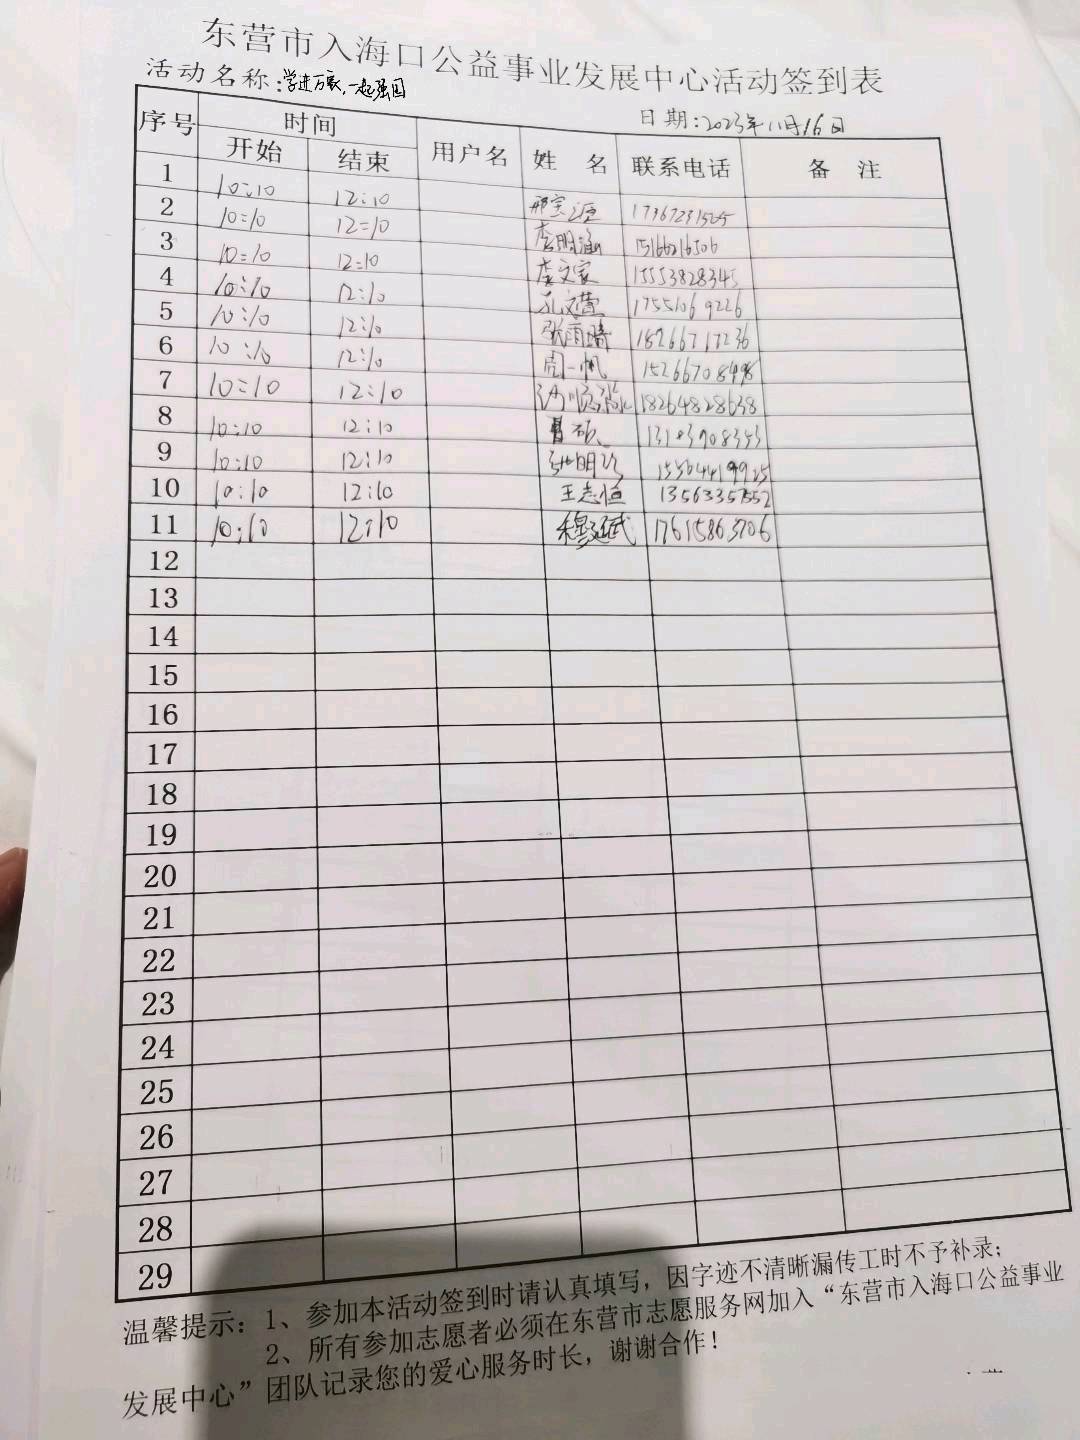 东营市入海口公益事业发展中心活动签到表
活动名称:学进万家,一起强国
日期:2023年11月16日
序号 时间 用户名 姓 名 联系电话 备 注
开始 结束
1 10:10 12:10 17367231525
2 10:10 12:10 李明涵 15166216506
3 10:10 12:10 李文家 15553828345
4 10:10 12:10 孔文萱 17551069226
5 10:10 12:10 张雨晴 18266717236
6 10:10 12:10 周一帆 15266708498
7 10:10 12:10 18264828638
8 10:10 12:10 13183908353
9 10:10 12:10 15564419925
10 10:10 12:10 王志恒 13563357552
11 10:10 12:10 穆延武 17615863706
12
13
14
15
16
17
18
19
20
21
22
23
24
25
26
27
28
29
温馨提示: 1、参加本活动签到时请认真填写,因字迹不清晰漏传工时不予补录;
2、所有参加志愿者必须在东营市志愿服务网加入“东营市入海口公益事业
发展中心”团队记录您的爱心服务时长,谢谢合作!